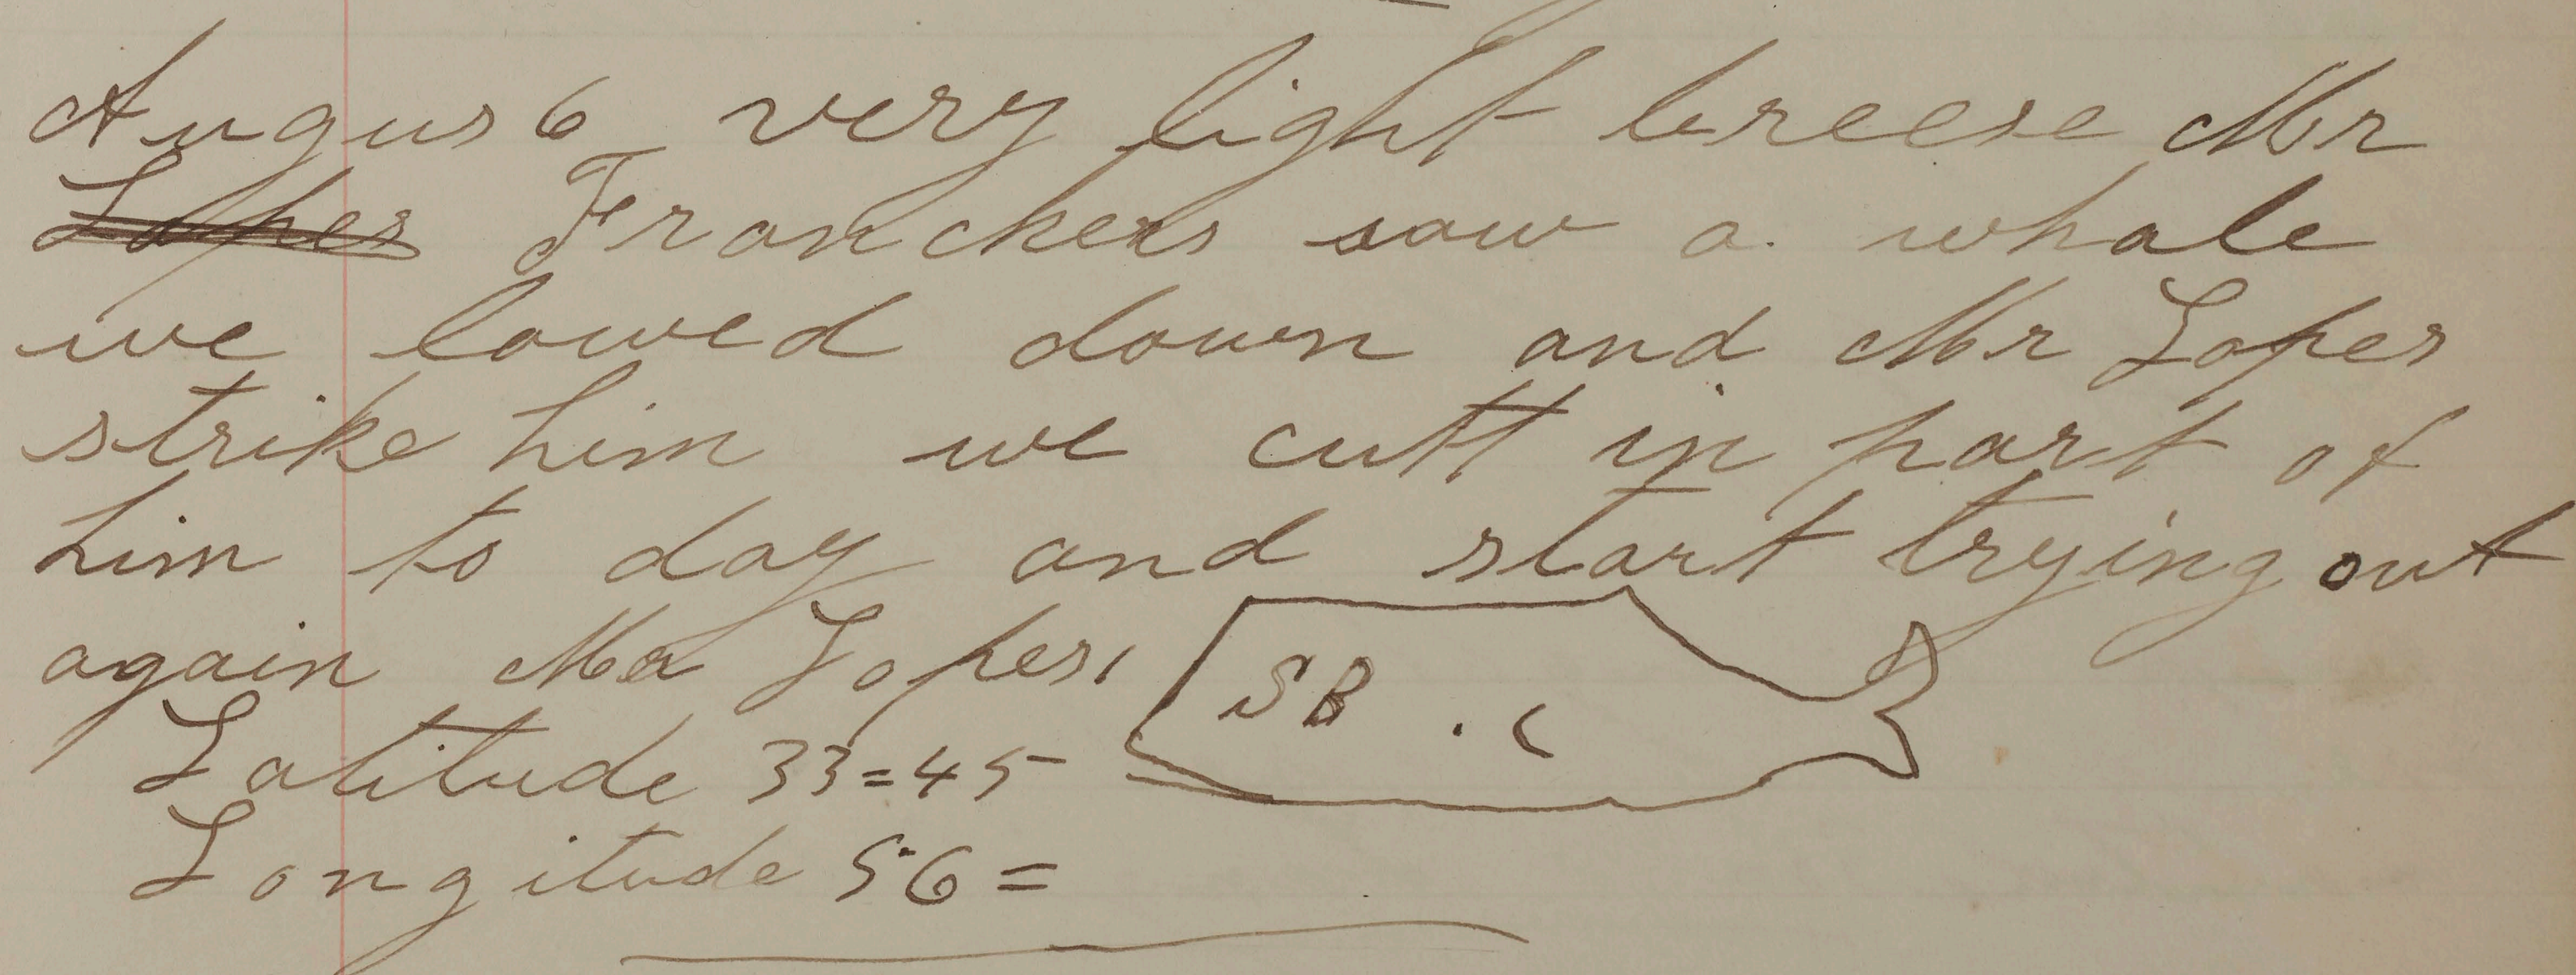 Augus 6 very light breese Mr
~~Loper~~ Franckers saw a whale
we lowed down and Mr Loper
strike him we cutt in part of
him to day and start trying out
again Mr Loper,
SB
Latitude 33=45
Longitude 56=